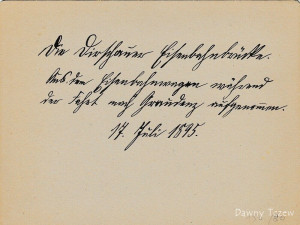 Die Dirschauer Eisenbahnbrücke.
Aus dem Eisenbahnwagen während
der Fahrt nach Graudenz aufgenommen.
17. Juli 1895.
Dawny Tczew